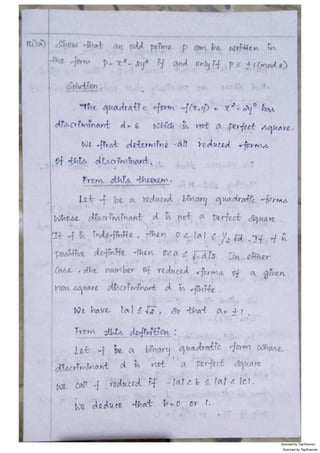 12) a) Show that an odd prime p can be written in
the form p = x² - 2y² if and only if p ≡ ±1 (mod 8)
Solution:
The quadratic form f(x,y) = x² - 2y² has
discriminant d = 8 which is not a perfect square.
We first determine all reduced forms
of this discriminant.
From this theorem,
Let f be a reduced binary quadratic forms
whose discriminant d is not a perfect square.
If f is indefinite, then 0 < |a| ≤ 1/2 √d. If f is
positive definite then 0 < a ≤ √-d/3. In either
case, the number of reduced forms of a given
non square discriminant d is finite.
We have |a| ≤ √2, so that a = ±1.
From this definition:
Let f be a binary quadratic form whose
discriminant d is not a perfect square
We call f reduced if -|a| < b ≤ |a| < |c|.
We deduce that b = 0 or 1.
Scanned by TapScanner
Scanned by TapScanner